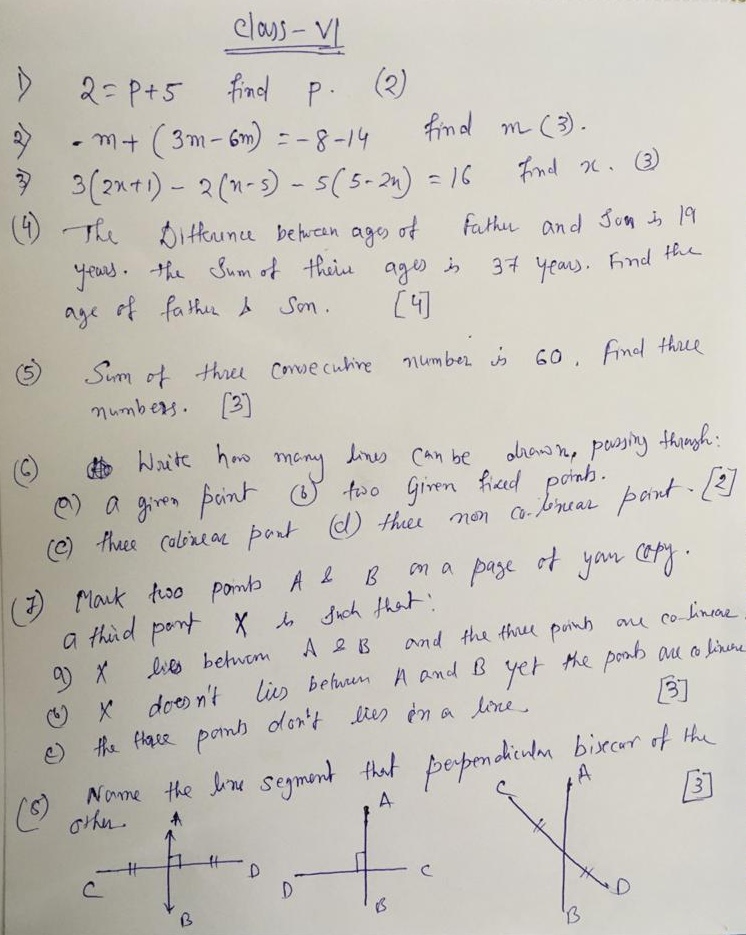 Class - VI
1) 2 = p + 5 find p. (2)
2) - m + (3m - 6m) = - 8 - 14 find m (3).
3) 3(2x+1) - 2(x-5) - 5(5-2x) = 16 find x. (3)
(4) The Differunce between ages of Father and Son is 19
years. the Sum of their ages is 37 years. Find the
age of father & Son. [4]
(5) Sum of three consecutive number is 60. Find three
numbers. [3]
(6) Write how many lines can be drawn, passing through:
(a) a given point (b) two Given fixed points.
(c) three colinear point (d) three non co-linear point. [2]
(7) Mark two points A & B on a page of your copy.
a third point X is such that:
a) X lies between A & B and the three points are co-linear.
(b) X doesn't lies between A and B yet the points are co linear
c) the three points don't lies in a line. [3]
(8) Name the line segment that perpendicular bisecar of the
other. [3]
A
C D
B
A
D C
B
C A
D
B